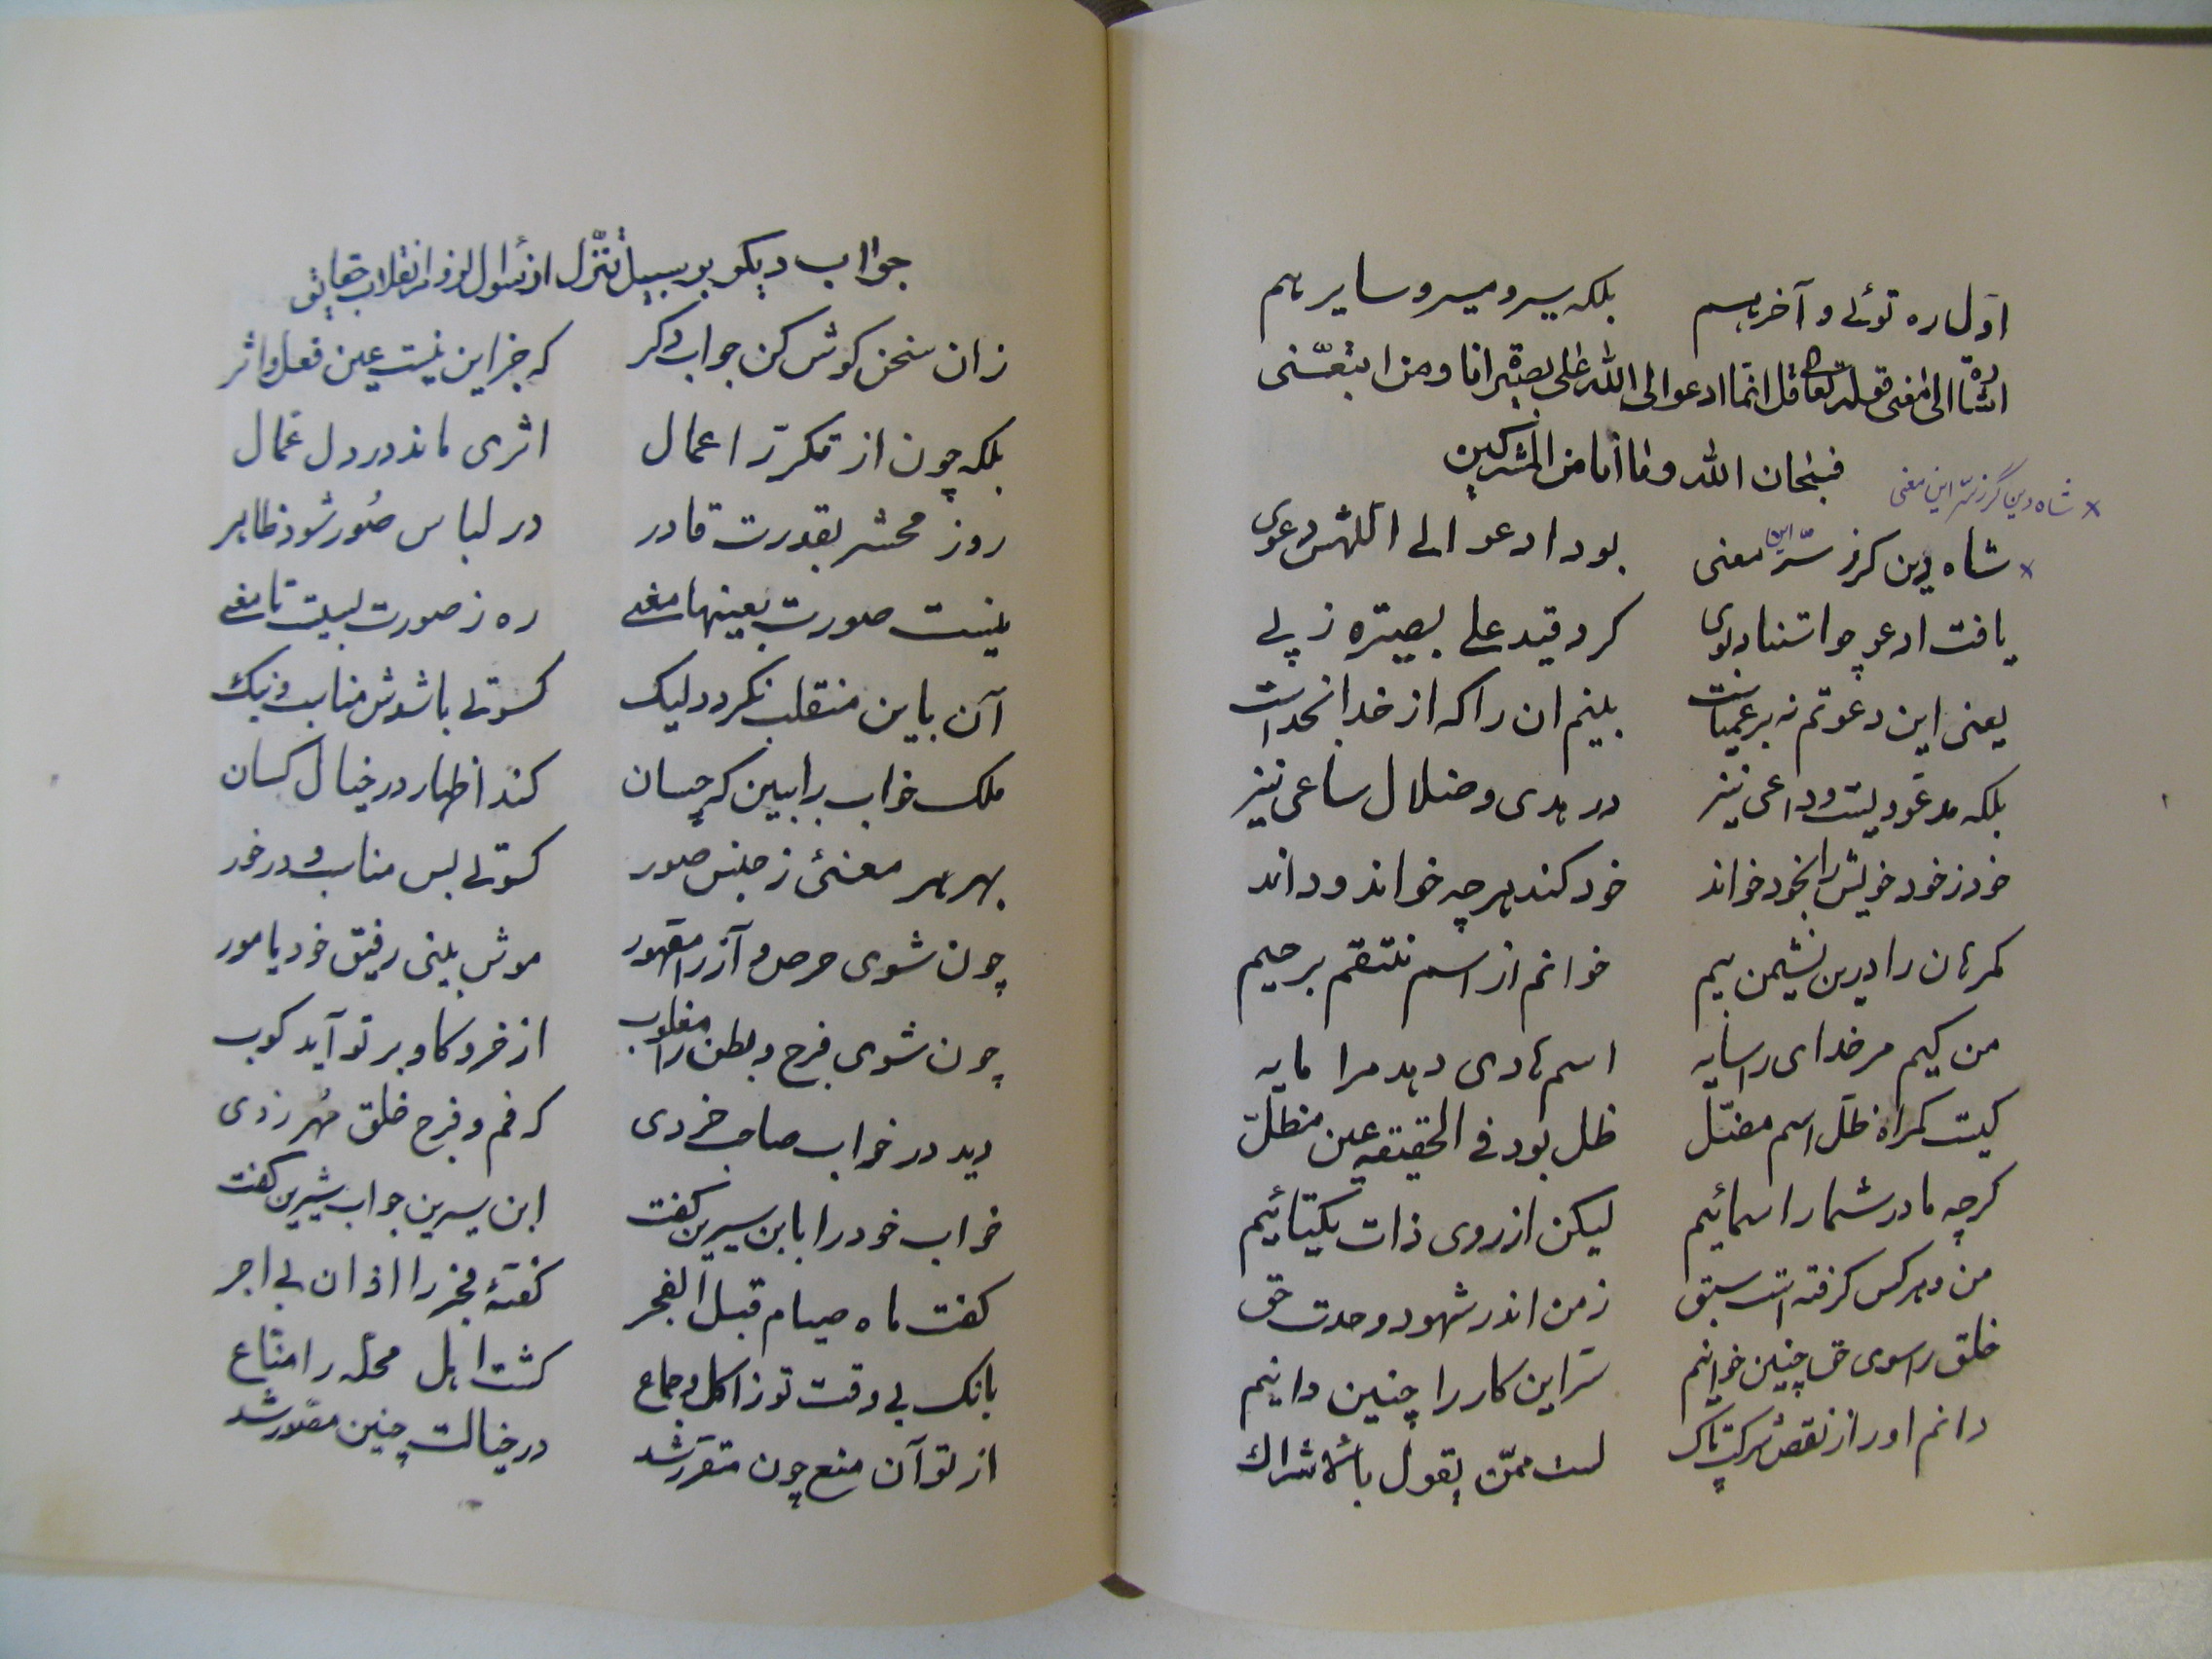 اول ره توئی و آخر هم بلکه سیر و مسیر و سایر هم
اشاره الی معنی قوله تعالی قل انما ادعو الی الله علی بصیرة انا و من اتبعنی
فسبحان الله و ما انا من المشرکین
× شاه دین گرز سر این معنی
× شاه دین کرز سرّ این معنی بود ادعو الی اللهش دعوی
یافت ادعو چو استناد بوی کرد قید علی بصیره ز پی
یعنی این دعوتم نه بر عمیاست بینم ان را که از خدا بخداست
بلکه مدعو ویست و داعی نیز در هدی و ضلال ساعی نیز
خود ز خود خویش را بخود خواند خود کند هرچه خواند و داند
کمرهان را درین نشیمن بیم خوانم از اسم منتقم برحیم
من کیم مر خدای را سایه اسم هادی دهد مرا مایه
کیست کمراه ظلّ اسم مضلّ ظل بود فی الحقیقه عین مظلّ
کرچه ما در شمار اسمائیم لیکن از روی ذات یکتائیم
من و هرکس کرفته است سبق ز من اندر شهود وحدت حق
خلق را سوی حق چنین خوانیم سرّ این کار را چنین دانیم
دانم او را ز نقص شرکت پاک لست ممّن یقول بالاشراك
جواب دیکر بر سبیل تنزل از سوال لزوم انقلاب حقایق
زان سخن کوش کن جواب دکر که جز این نیست عین فعل و اثر
بلکه چون از تکرّر اعمال اثری ماند در دل عمال
روز محشر بقدرت قادر در لباس صُور شود ظاهر
نیست صورت بعینها معنی ره ز صورت بسیست تا معنی
آن باین منقلب نکردد لیک کسوتی باشدش مناسب و نیک
ملک خواب را ببین که چسان کند اظهار در خیال کسان
بهر هر معنئی ز جنس صور کسوتی بس مناسب و درخور
چون شوی حرص و آز را مقهور موش بینی رفیق خود یا مور
چون شوی فرج و بطن را مغلوب از خر و کاو بر تو آید کوب
دید در خواب صاحب خردی که فم و فرج خلق مُهر زدی
خواب خود را بابن سیرین کفت ابن سیرین جواب شیرین کفت
کفت ماه صیام قبل الفجر کفتۀ فجر را اذان بی اجر
بانک بی وقت تو ز اکل و جماع کشت اهل محله را منّاع
از تو آن منع چون متقرر شد در خیالت چنین مصور شد